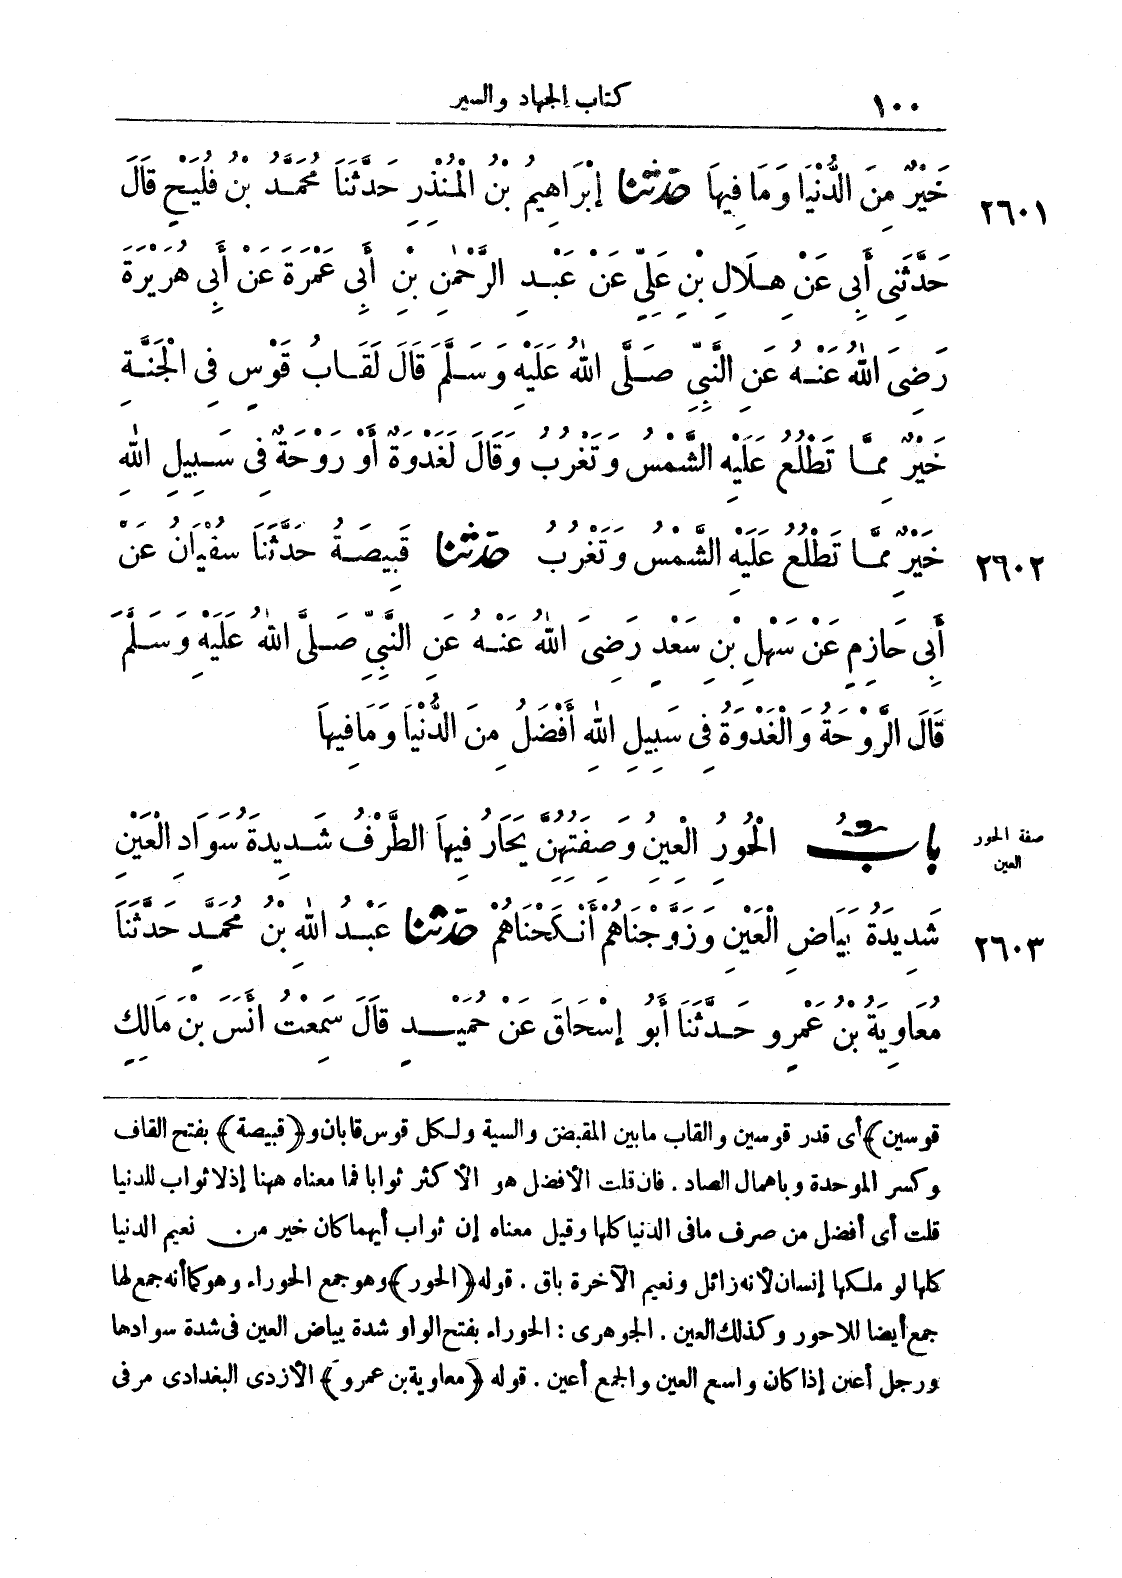 ١٠٠ كتاب الجهاد والسير
خَيْرٌ مِنَ الدُّنْيَا وَمَا فِيهَا حدثنا إِبْرَاهِيمُ بْنُ الْمُنْذِرِ حَدَّثَنَا مُحَمَّدُ بْنُ فُلَيْحٍ قَالَ ٢٦٠١
حَدَّثَنِى أَبِى عَنْ هِلَالِ بْنِ عَلِيٍّ عَنْ عَبْدِ الرَّحْمٰنِ بْنِ أَبِى عَمْرَةَ عَنْ أَبِى هُرَيْرَةَ
رَضِىَ اللهُ عَنْهُ عَنِ النَّبِيِّ صَلَّى اللهُ عَلَيْهِ وَسَلَّمَ قَالَ لَقَابُ قَوْسٍ فِى الْجَنَّةِ
خَيْرٌ مِمَّا تَطْلُعُ عَلَيْهِ الشَّمْسُ وَتَغْرُبُ وَقَالَ لَغَدْوَةٌ أَوْ رَوْحَةٌ فِى سَبِيلِ اللهِ
خَيْرٌ مِمَّا تَطْلُعُ عَلَيْهِ الشَّمْسُ وَتَغْرُبُ حدثنا قَبِيصَةُ حَدَّثَنَا سُفْيَانُ عَنْ ٢٦٠٢
أَبِى حَازِمٍ عَنْ سَهْلِ بْنِ سَعْدٍ رَضِىَ اللهُ عَنْهُ عَنِ النَّبِيِّ صَلَّى اللهُ عَلَيْهِ وَسَلَّمَ
قَالَ الرَّوْحَةُ وَالْغَدْوَةُ فِى سَبِيلِ اللهِ أَفْضَلُ مِنَ الدُّنْيَا وَمَا فِيهَا
باب الْحُورُ الْعِينُ وَصِفَتِهِنَّ يَحَارُ فِيهَا الطَّرْفُ شَدِيدَةُ سَوَادِ الْعَيْنِ صفة الحور
العين
شَدِيدَةُ بَيَاضِ الْعَيْنِ وَزَوَّجْنَاهُمْ أَنْكَحْنَاهُمْ حدثنا عَبْدُ اللهِ بْنُ مُحَمَّدٍ حَدَّثَنَا ٢٦٠٣
مُعَاوِيَةُ بْنُ عَمْرٍو حَدَّثَنَا أَبُو إِسْحَاقَ عَنْ حُمَيْدٍ قَالَ سَمِعْتُ أَنَسَ بْنَ مَالِكٍ
قوسين) أى قدر قوسين والقاب مابين المقبض والسية ولكل قوس قابان و(قبيصة) بفتح القاف
وكسر الموحدة وباهمال الصاد . فان قلت الأفضل هو الأكثر ثوابا فما معناه ههنا إذ لا ثواب للدنيا
قلت أى أفضل من صرف مافى الدنيا كلها وقيل معناه إن ثواب أيهما كان خير من نعيم الدنيا
كلها لو ملكها إنسان لأنه زائل ونعيم الآخرة باق . قوله (الحور) وهو جمع الحوراء وهو كما أنه جمع لها
جمع أيضا للاحور وكذلك العين . الجوهرى : الحوراء بفتح الواو شدة بياض العين فى شدة سوادها
ورجل أعين إذا كان واسع العين والجمع أعين . قوله (معاوية بن عمرو) الأزدى البغدادى مر فى